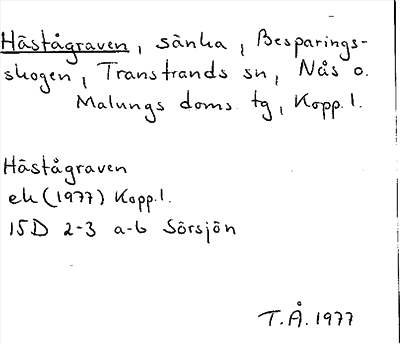 Håstågraven, sänka, Besparings-
skogen, Transtrands sn, Nås o.
Malungs doms. tg, Kopp. l.
Håstågraven
ek (1977) Kopp. l.
15D 2-3 a-b Sörsjön
T.Å. 1977